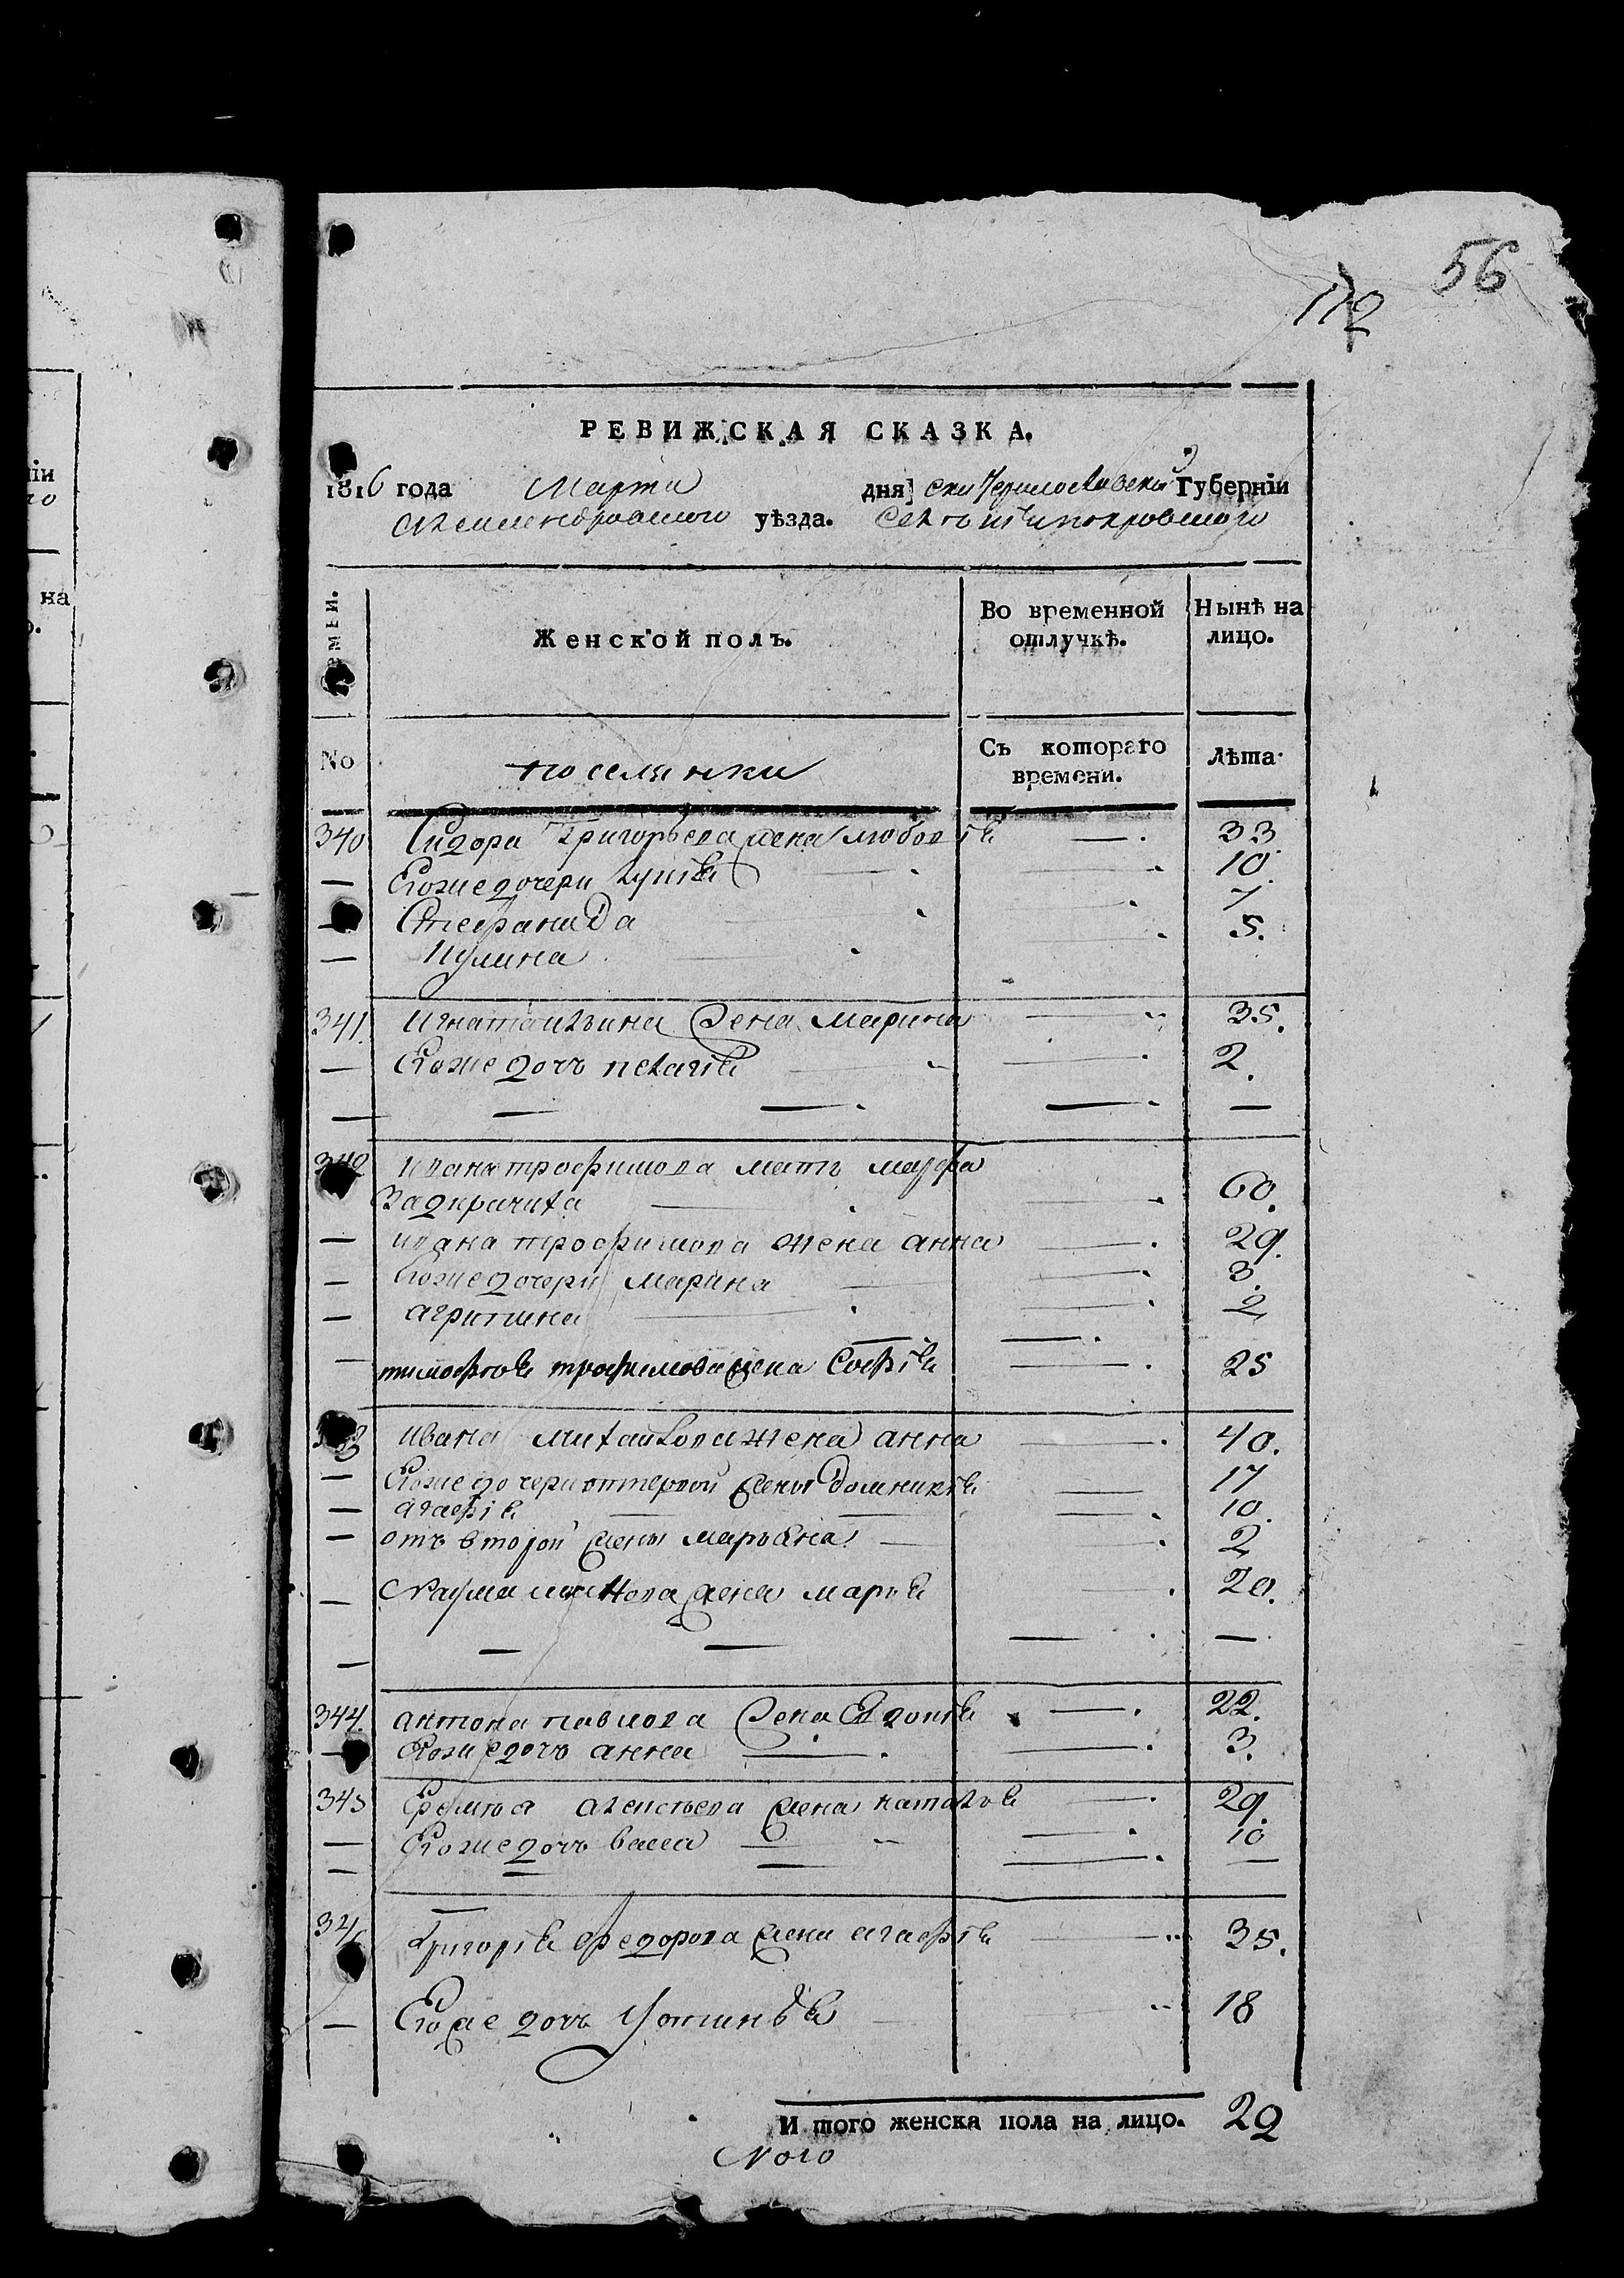 56
112
РЕВИЖСКАЯ СКАЗКА.
1816 года Марта дня Екатеринославской Губерніи
Александровского уѣзда. Селенія покровского
No
Женской полъ.
Во временной отлучкѣ.
Нынѣ на лицо.
поселянки
Съ котораго времени.
Лѣта.
340 Сидора Григорьева жена любовія — 33
— Егожедочери Лукія — 10.
— Стефанида — 7
— Иулина — 5.
341. игната ильина жена марина — 35.
— Егоже дочь пелагія — 2.
— — — — —
342 ивана трофимова мать марфа
Задирачиха — 60.
— ивана трофимова жена анна — 29.
— Егожедочери марина — 3.
— агрипина — 2
— тимофѣя трофимова жена Софія — 25
343 ивана михайлова жена анна — 40.
— Егоже дочери отпервой жены Домникія — 17
— агафія — 10.
— отъ второй жены марьяна — 2
— Наума жена марья — 20.
— — — — —
344. антона павлова жена Евдокія — 22.
— Егожедочь анна — 3.
345 Еремѣя алексѣева жена наталья — 29.
— Егожедочь васса — 10
— — — — —
346 Григорія федорова жена агафія — 35.
— Егоже дочь Устинья — 18
И того женска пола на лицо. 29
Ного
іи
го
на